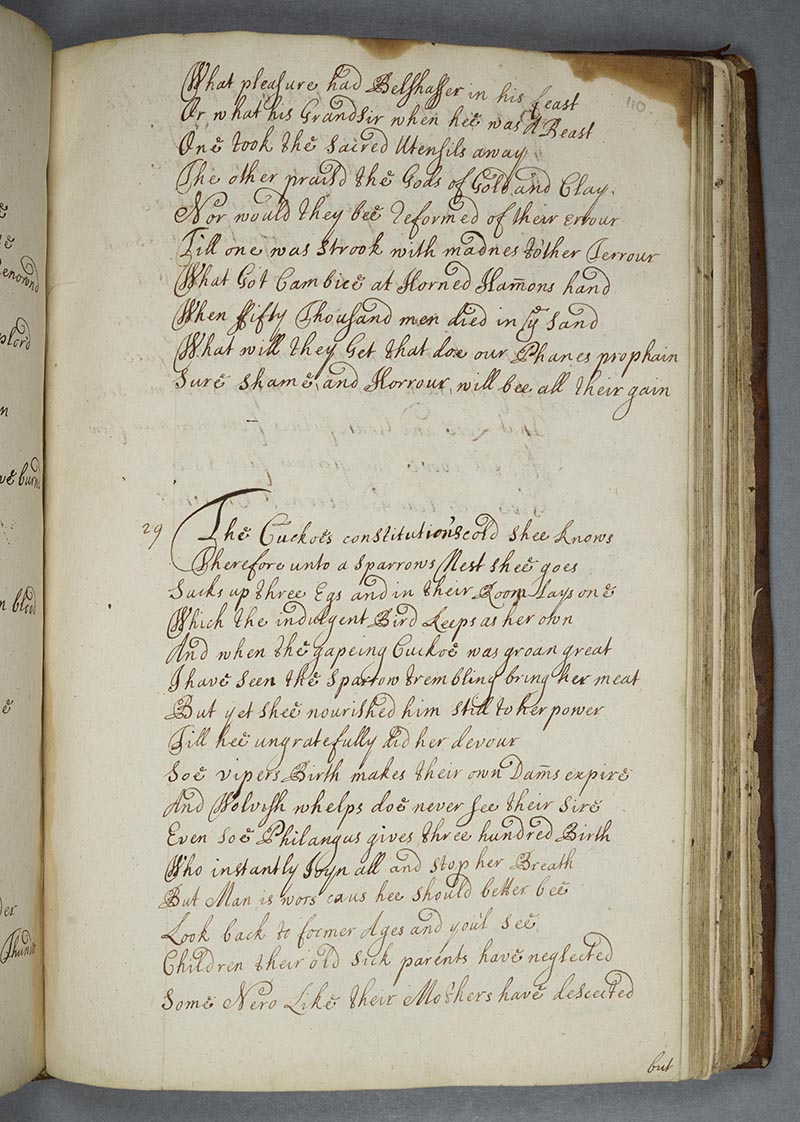 110
What pleasure had Belshasser in his feast
Or what his Grandsir when hee was A Beast
One took the sacred Utensils away
The other praisd the Gods of Gold and Clay.
Nor would they bee Reformed of their errour
Till one was strook with madnes to'ther Terrour
What Got Cambice at Horned Ham̄ons hand
When ffifty Thousand men died in yͤ sand
What will they Get that doe our Phanes prophain
Sure shame and Horrour will bee all their gain
29 The Cuckoes constitution's cold shee knows
Therefore unto a sparrows Nest shee goes
Sucks up three Egs and in their Room lays one
Which the indulgent Bird keeps as her own
And when the gapeing Cuckoe was groan great
I have seen the sparrow trembling bring her meat
But yet shee nourished him still to her power
Till hee ungratefully did her devour
Soe vipers Birth makes their own Dam̄s expire
And Wolvish whelps doe never see their sire
Even soe Philangus gives three hundred Birth
Who instantly Joyn all and stop her Breath
But Man is wors caus hee should better bee
Look back to former Ages and you'l see
Children their old sick parents have neglected
Some Nero Like their Mothers have descected
but
enownd
plord
ve burnd
n blood
der
Thund